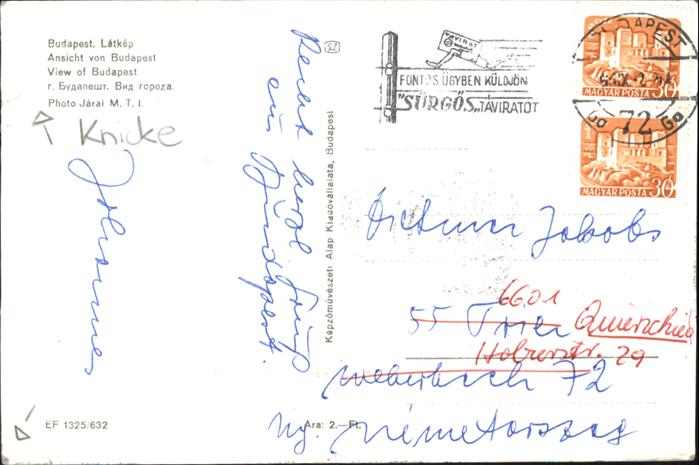 Budapest. Látkép
Ansicht von Budapest
View of Budapest
г. Будапешт. Вид города.
Photo Járai M. T. I.
Knicke
Recht herzl. Gruß
aus Budapest.
Johannes
EF 1325/632
Ára: 2.—Ft.
Képzőművészeti Alap Kiadóvállalata, Budapest
TÁVIRAT
FONTOS ÜGYBEN KÜLDJÖN
"SÜRGŐS" TÁVIRATOT
BUDAPEST
72
MAGYAR POSTA 30
MAGYAR POSTA 30
Dietmar Jakobs
6601
55 Trier Quierschied
Holzerstr. 29
Weberbach 72
Ny. Németország